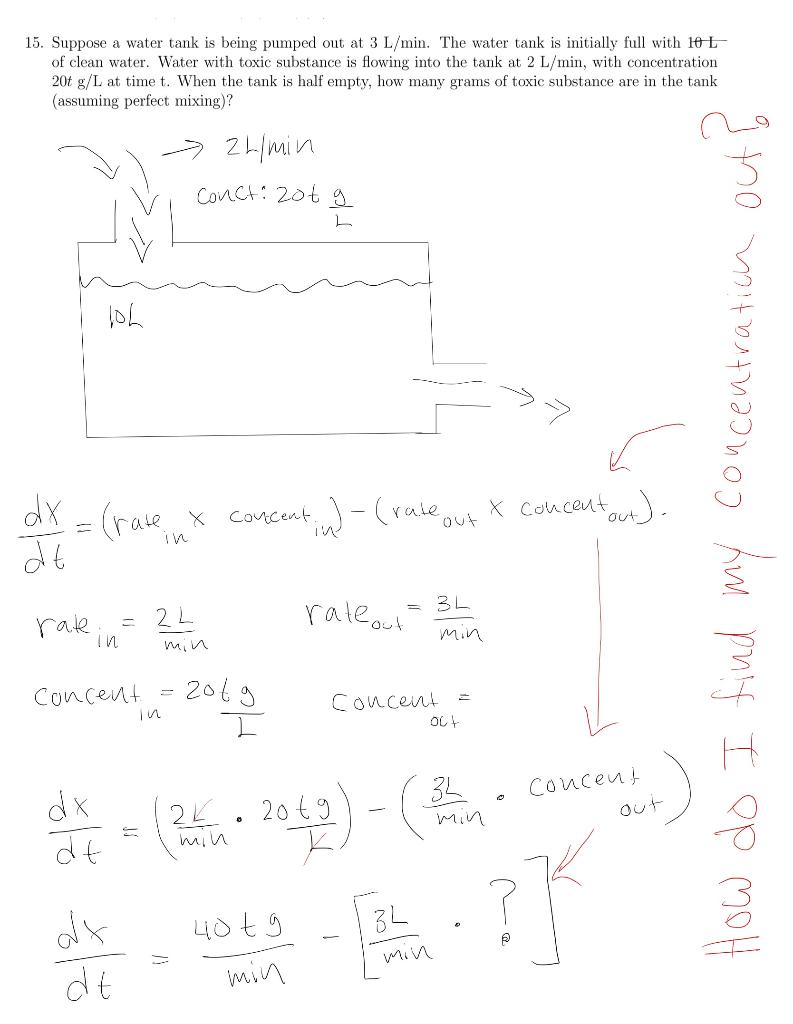 15. Suppose a water tank is being pumped out at 3 L/min. The water tank is initially full with 10 L
of clean water. Water with toxic substance is flowing into the tank at 2 L/min, with concentration
20t g/L at time t. When the tank is half empty, how many grams of toxic substance are in the tank
(assuming perfect mixing)?
→ 2L/min
Conct: 20t g/L
10L
dx/dt = (rate in x concent in) - (rate out x concent out).
rate in = 2L/min rate out = 3L/min
concent in = 20t g/L concent out =
dx/dt = (2L/min · 20tg/L) - (3L/min · concent out)
dx/dt = 40tg/min - [3L/min · ?]
How do I find my concentration out?